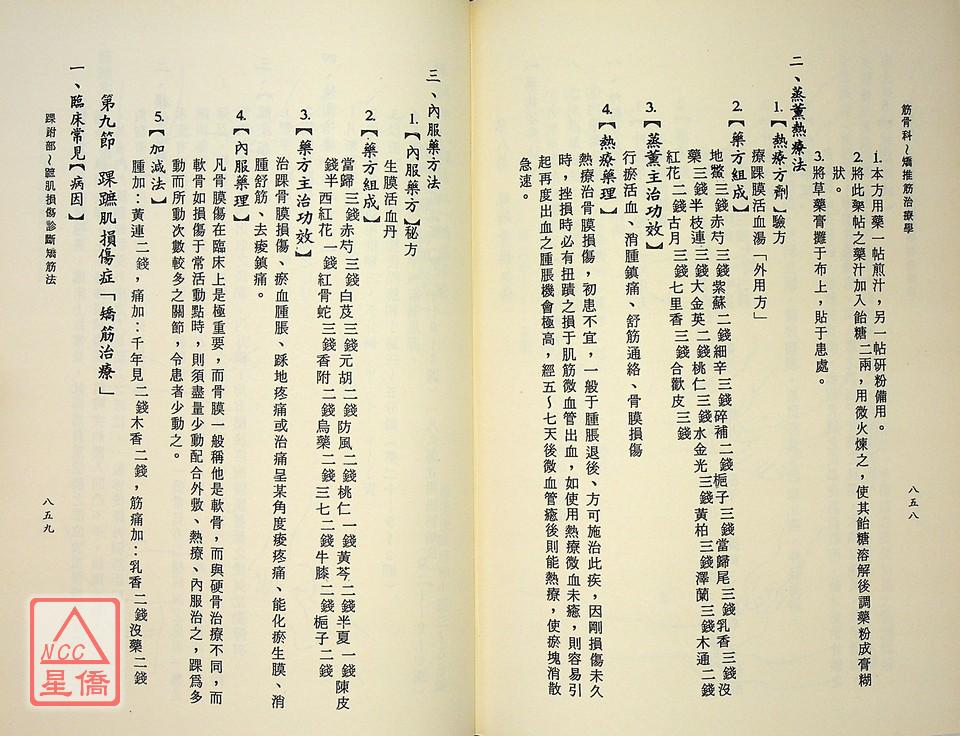 筋骨科～矯推筋治療學
八五八
1.本方用藥一帖煎汁，另一帖研粉備用。
2.將此藥帖之藥汁加入飴糖二兩，用微火煉之，使其飴糖溶解後調藥粉成膏糊
狀。
3.將草藥膏攤于布上，貼于患處。
二、蒸薰熱療法
1.【熱療方劑】驗方
療踝膜活血湯「外用方」
2.【藥方組成】
地鱉三錢赤芍三錢紫蘇二錢細辛三錢碎補二錢梔子三錢當歸尾三錢乳香三錢沒
藥三錢半枝連三錢大金英二錢桃仁三錢水金光三錢黃柏三錢澤蘭三錢木通二錢
紅花二錢古月三錢七里香三錢合歡皮三錢
3.【蒸薰主治功效】
行瘀活血、消腫鎮痛、舒筋通絡、骨膜損傷
4.【熱療藥理】
熱療治骨膜損傷，初患不宜，一般于腫脹退後、方可施治此疾，因剛損傷未久
時，挫損時必有扭蹟之損于肌筋微血管出血，如使用熱療微血未癒，則容易引
起再度出血之腫脹機會極高，經五～七天後微血管癒後則能熱療，使瘀塊消散
急速。
三、內服藥方法
1.【內服藥方】秘方
生膜活血丹
2.【藥方組成】
當歸三錢赤芍三錢白芨三錢元胡二錢防風二錢桃仁一錢黃芩二錢半夏一錢陳皮
錢半西紅花一錢紅骨蛇三錢香附二錢烏藥二錢三七二錢牛膝二錢梔子二錢
3.【藥方主治功效】
治踝骨膜損傷、瘀血腫脹、踩地疼痛或治痛呈某角度痠疼痛、能化瘀生膜、消
腫舒筋、去痠鎮痛。
4.【內服藥理】
凡骨膜傷在臨床上是極重要，而骨膜一般稱他是軟骨，而與硬骨治療不同，而
軟骨如損傷于常活動點時，則須盡量少動配合外敷、熱療、內服治之，踝爲多
動而所動次數較多之關節，令患者少動之。
5.【加減法】
腫加：黃連二錢，痛加：千年見二錢木香二錢，筋痛加：乳香二錢沒藥二錢
第九節　踝蹠肌損傷症「矯筋治療」
一、臨床常見【病因】
踝跗部～蹠肌損傷診斷矯筋法
八五九
NCC
星僑